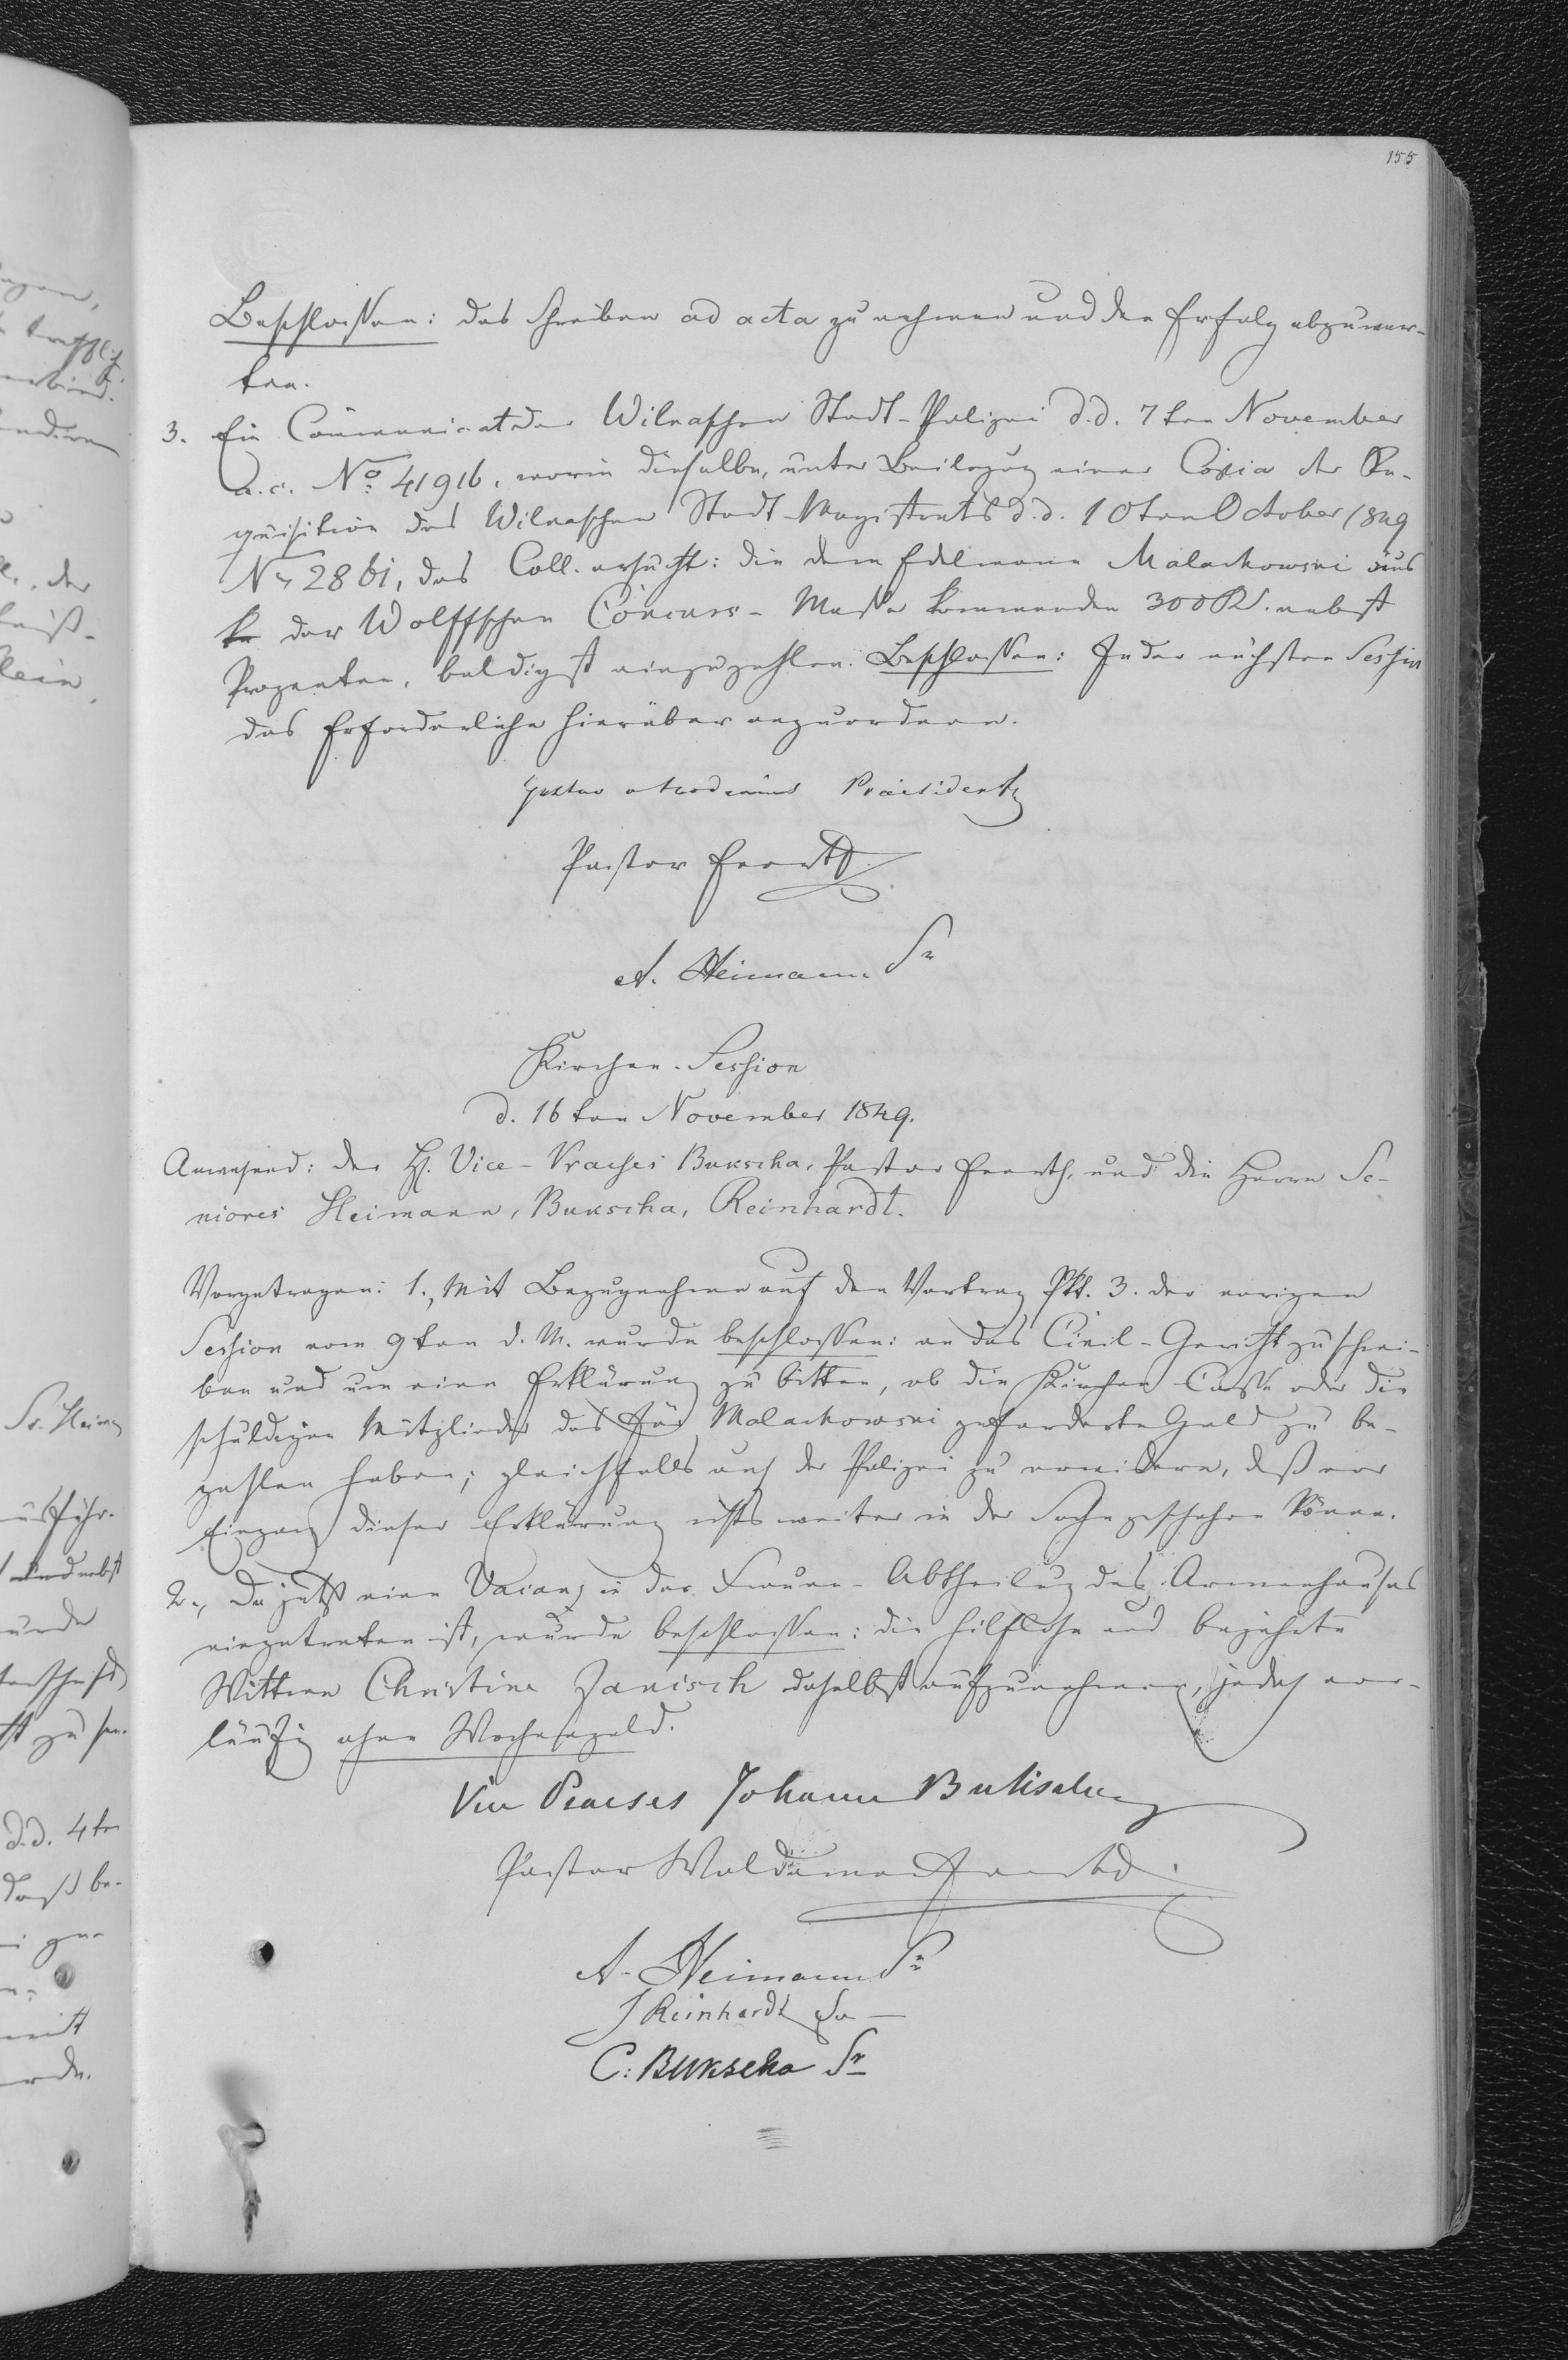 155
Beschlossen: das Schreiben ad acta zu nehmen und den Erfolg abzuwar-
ten.
3. Ein Communicat der Wilnaschen Stadt-Polizei d.d. 7ten November
a.c. No: 41916, worin dieselbe, unter Beilegung einer Copia der Re-
quisition des Wilnaschen Stadt-Magistrats d.d. 10ten October 1849
No 2861, das Coll. ersucht: die dem Edelmann Malachowski aus
der Wolffschen Concurs-Masse kommenden 300 R. nebst
Prozenten, baldigst einzuzahlen. Beschlossen: In der nächsten Session
das Erforderliche hierüber anzuordnen.
Präsident
Pastor
A. Heimann Sr
Kirchen-Session
d. 16ten November 1849.
Anwesend: der H. Vice-Praeses Bukscha, Pastor und die Herrn Se-
niores Heimann, Bukscha, Reinhardt.
Vorgetragen: 1., Mit Bezugnahme auf den Vortrag Pkt. 3. der vorigen
Session vom 9ten d. M. wurde beschlossen: an das Civil-Gericht zu schrei-
ben und um eine Erklärung zu bitten, ob die Kirchen-Casse oder die
schuldigen Mitglieder das für Malachowski geforderte Geld zu be-
zahlen haben; gleichfalls auch der Polizei zu erwidern, daß vor
Eingang dieser Erklärung nichts weiter in der Sache geschehen könne.
2., Da jetzt eine Vacanz in der Frauen-Abtheilung des Armenhauses
eingetreten ist, wurde beschlossen: die hilflose und bejahrte
Wittwe Christine Janisch daselbst aufzunehmen, jedoch vor-
läufig ohne Wochengeld.
Vice Praeses Johann Bukscha
Pastor Woldemar
A. Heimann Sr
J Reinhardt Sr
C: Bukscha Sr